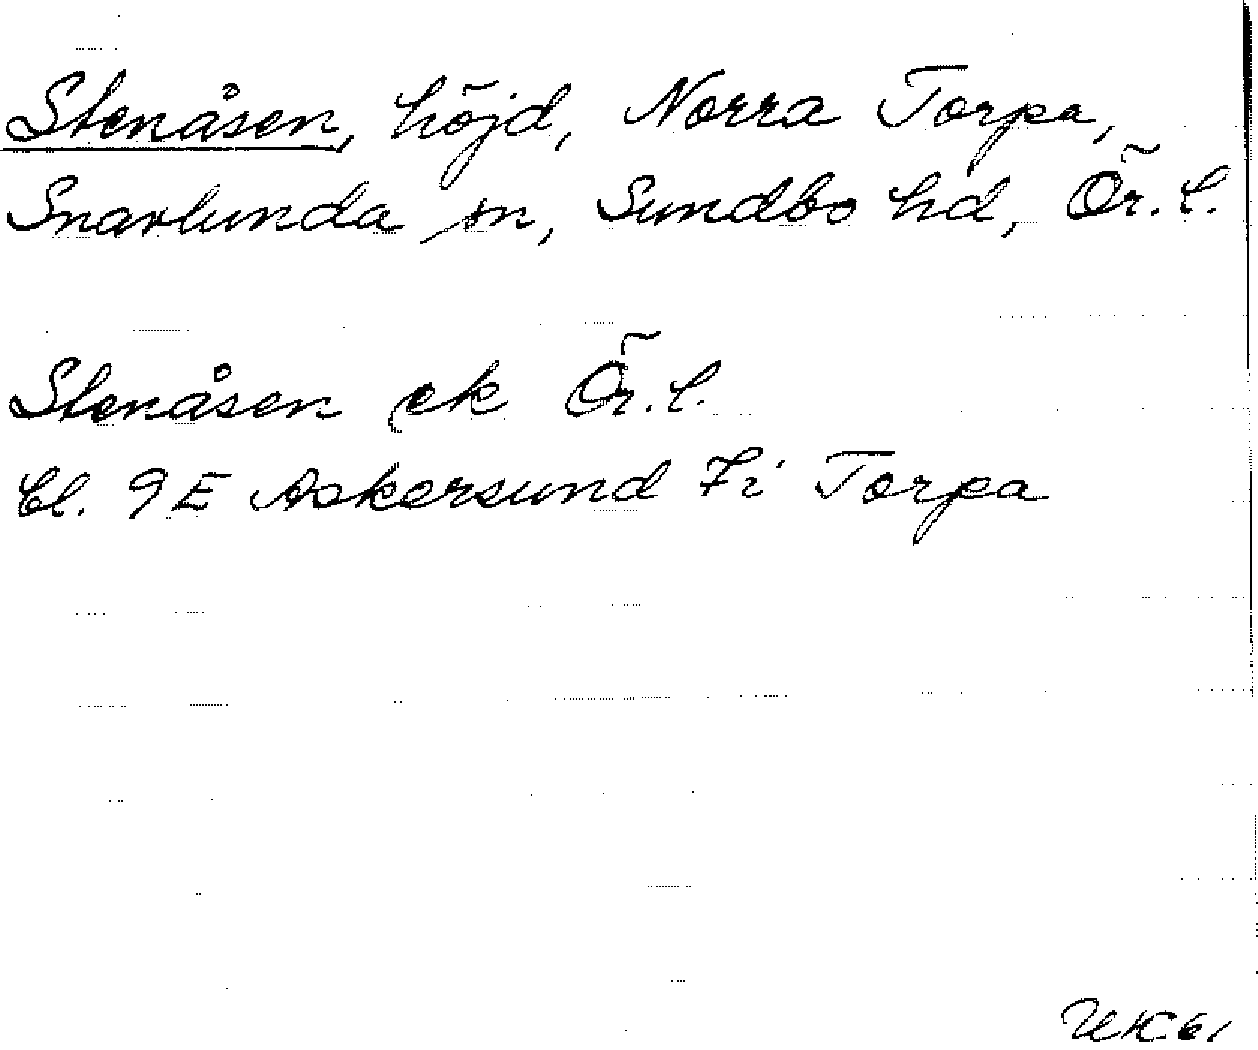 Stenåsen, höjd, Norra Torpa,
Snavlunda sn, Sundbo hd, Ör. l.
Stenåsen ek Ör. l.
Bl. 9E Askersund 7i Torpa